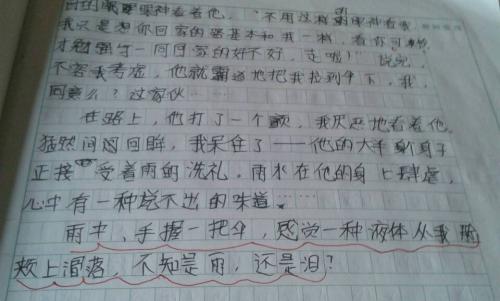 眼神看着他，“不用这样的眼神看我
我只是想你回家的路基本和我一样，看你可怜，
才勉强与一同回家的好不好，走啦！”说完，
不容我考虑，他就霸道地把我拉到伞下，我，
同意么？这家伙……
在路上，他打了一个颤，我厌恶地看着他，
猛然间回眸，我呆住了——他的大半身子
正接受着雨的洗礼，雨水在他的身上肆虐，
心中有一种说不出的味道。……
雨中，手握一把伞，感觉一种液体从我的
颊上滑落，不知是雨，还是泪？